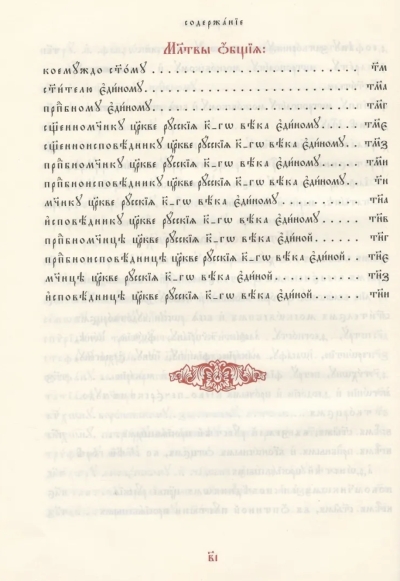 содержа́нїе
Мл҃твы ѻ҆́бщыѧ:
коемꙋ́ждо ст҃о́мꙋ . . . . . . . . . . . . . . . . . . . . . т҃м
ст҃и́телю є҆ди́номꙋ . . . . . . . . . . . . . . . . . . . . тм҃а
прпⷣбномꙋ є҆ди́номꙋ . . . . . . . . . . . . . . . . . . . . тм҃г
сщ҃енномч҃икꙋ цр҃кве рꙋ́сскїѧ к҃-гѡ вѣ́ка є҆ди́номꙋ . . . тм҃є
сщ҃енноисповѣ́дникꙋ цр҃кве рꙋ́сскїѧ к҃-гѡ вѣ́ка є҆ди́номꙋ. тм҃з
прпⷣбномч҃икꙋ цр҃кве рꙋ́сскїѧ к҃-гѡ вѣ́ка є҆ди́номꙋ . . . . тм҃и
прпⷣбноисповѣ́дникꙋ цр҃кве рꙋ́сскїѧ к҃-гѡ вѣ́ка є҆ди́номꙋ. т҃н
мч҃икꙋ цр҃кве рꙋ́сскїѧ к҃-гѡ вѣ́ка є҆ди́номꙋ . . . . . . . тн҃а
и҆сповѣ́дникꙋ цр҃кве рꙋ́сскїѧ к҃-гѡ вѣ́ка є҆ди́номꙋ . . . . тн҃в
прпⷣбномч҃ицѣ цр҃кве рꙋ́сскїѧ к҃-гѡ вѣ́ка є҆ди́ной . . . . . тн҃г
прпⷣбноисповѣ́дницѣ цр҃кве рꙋ́сскїѧ к҃-гѡ вѣ́ка є҆ди́ной . . тн҃є
мч҃ицѣ цр҃кве рꙋ́сскїѧ к҃-гѡ вѣ́ка є҆ди́ной . . . . . . . . тн҃з
и҆сповѣ́дницѣ цр҃кве рꙋ́сскїѧ к҃-гѡ вѣ́ка є҆ди́ной . . . . . тн҃и
в҃і